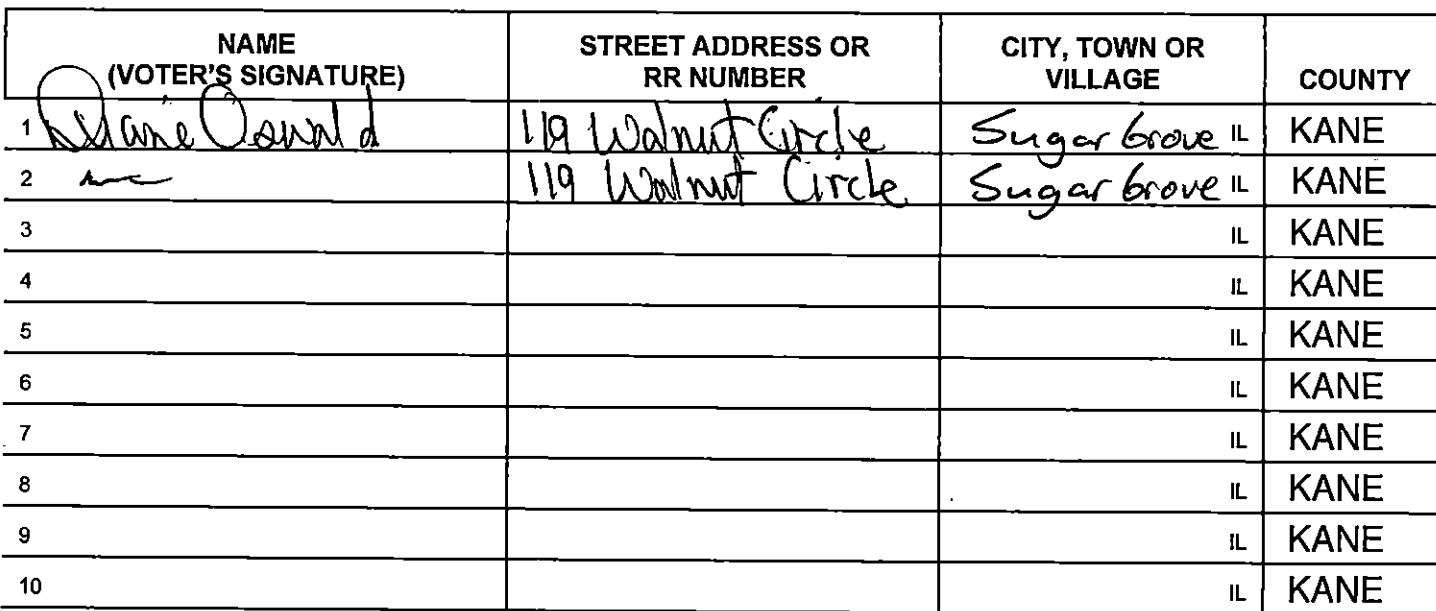 NAME
(VOTER'S SIGNATURE)
STREET ADDRESS OR
RR NUMBER
CITY, TOWN OR
VILLAGE
COUNTY
1 Diane Oswald 119 Walnut Circle Sugar Grove IL KANE
2 119 Walnut Circle Sugar Grove IL KANE
3 IL KANE
4 IL KANE
5 IL KANE
6 IL KANE
7 IL KANE
8 IL KANE
9 IL KANE
10 IL KANE